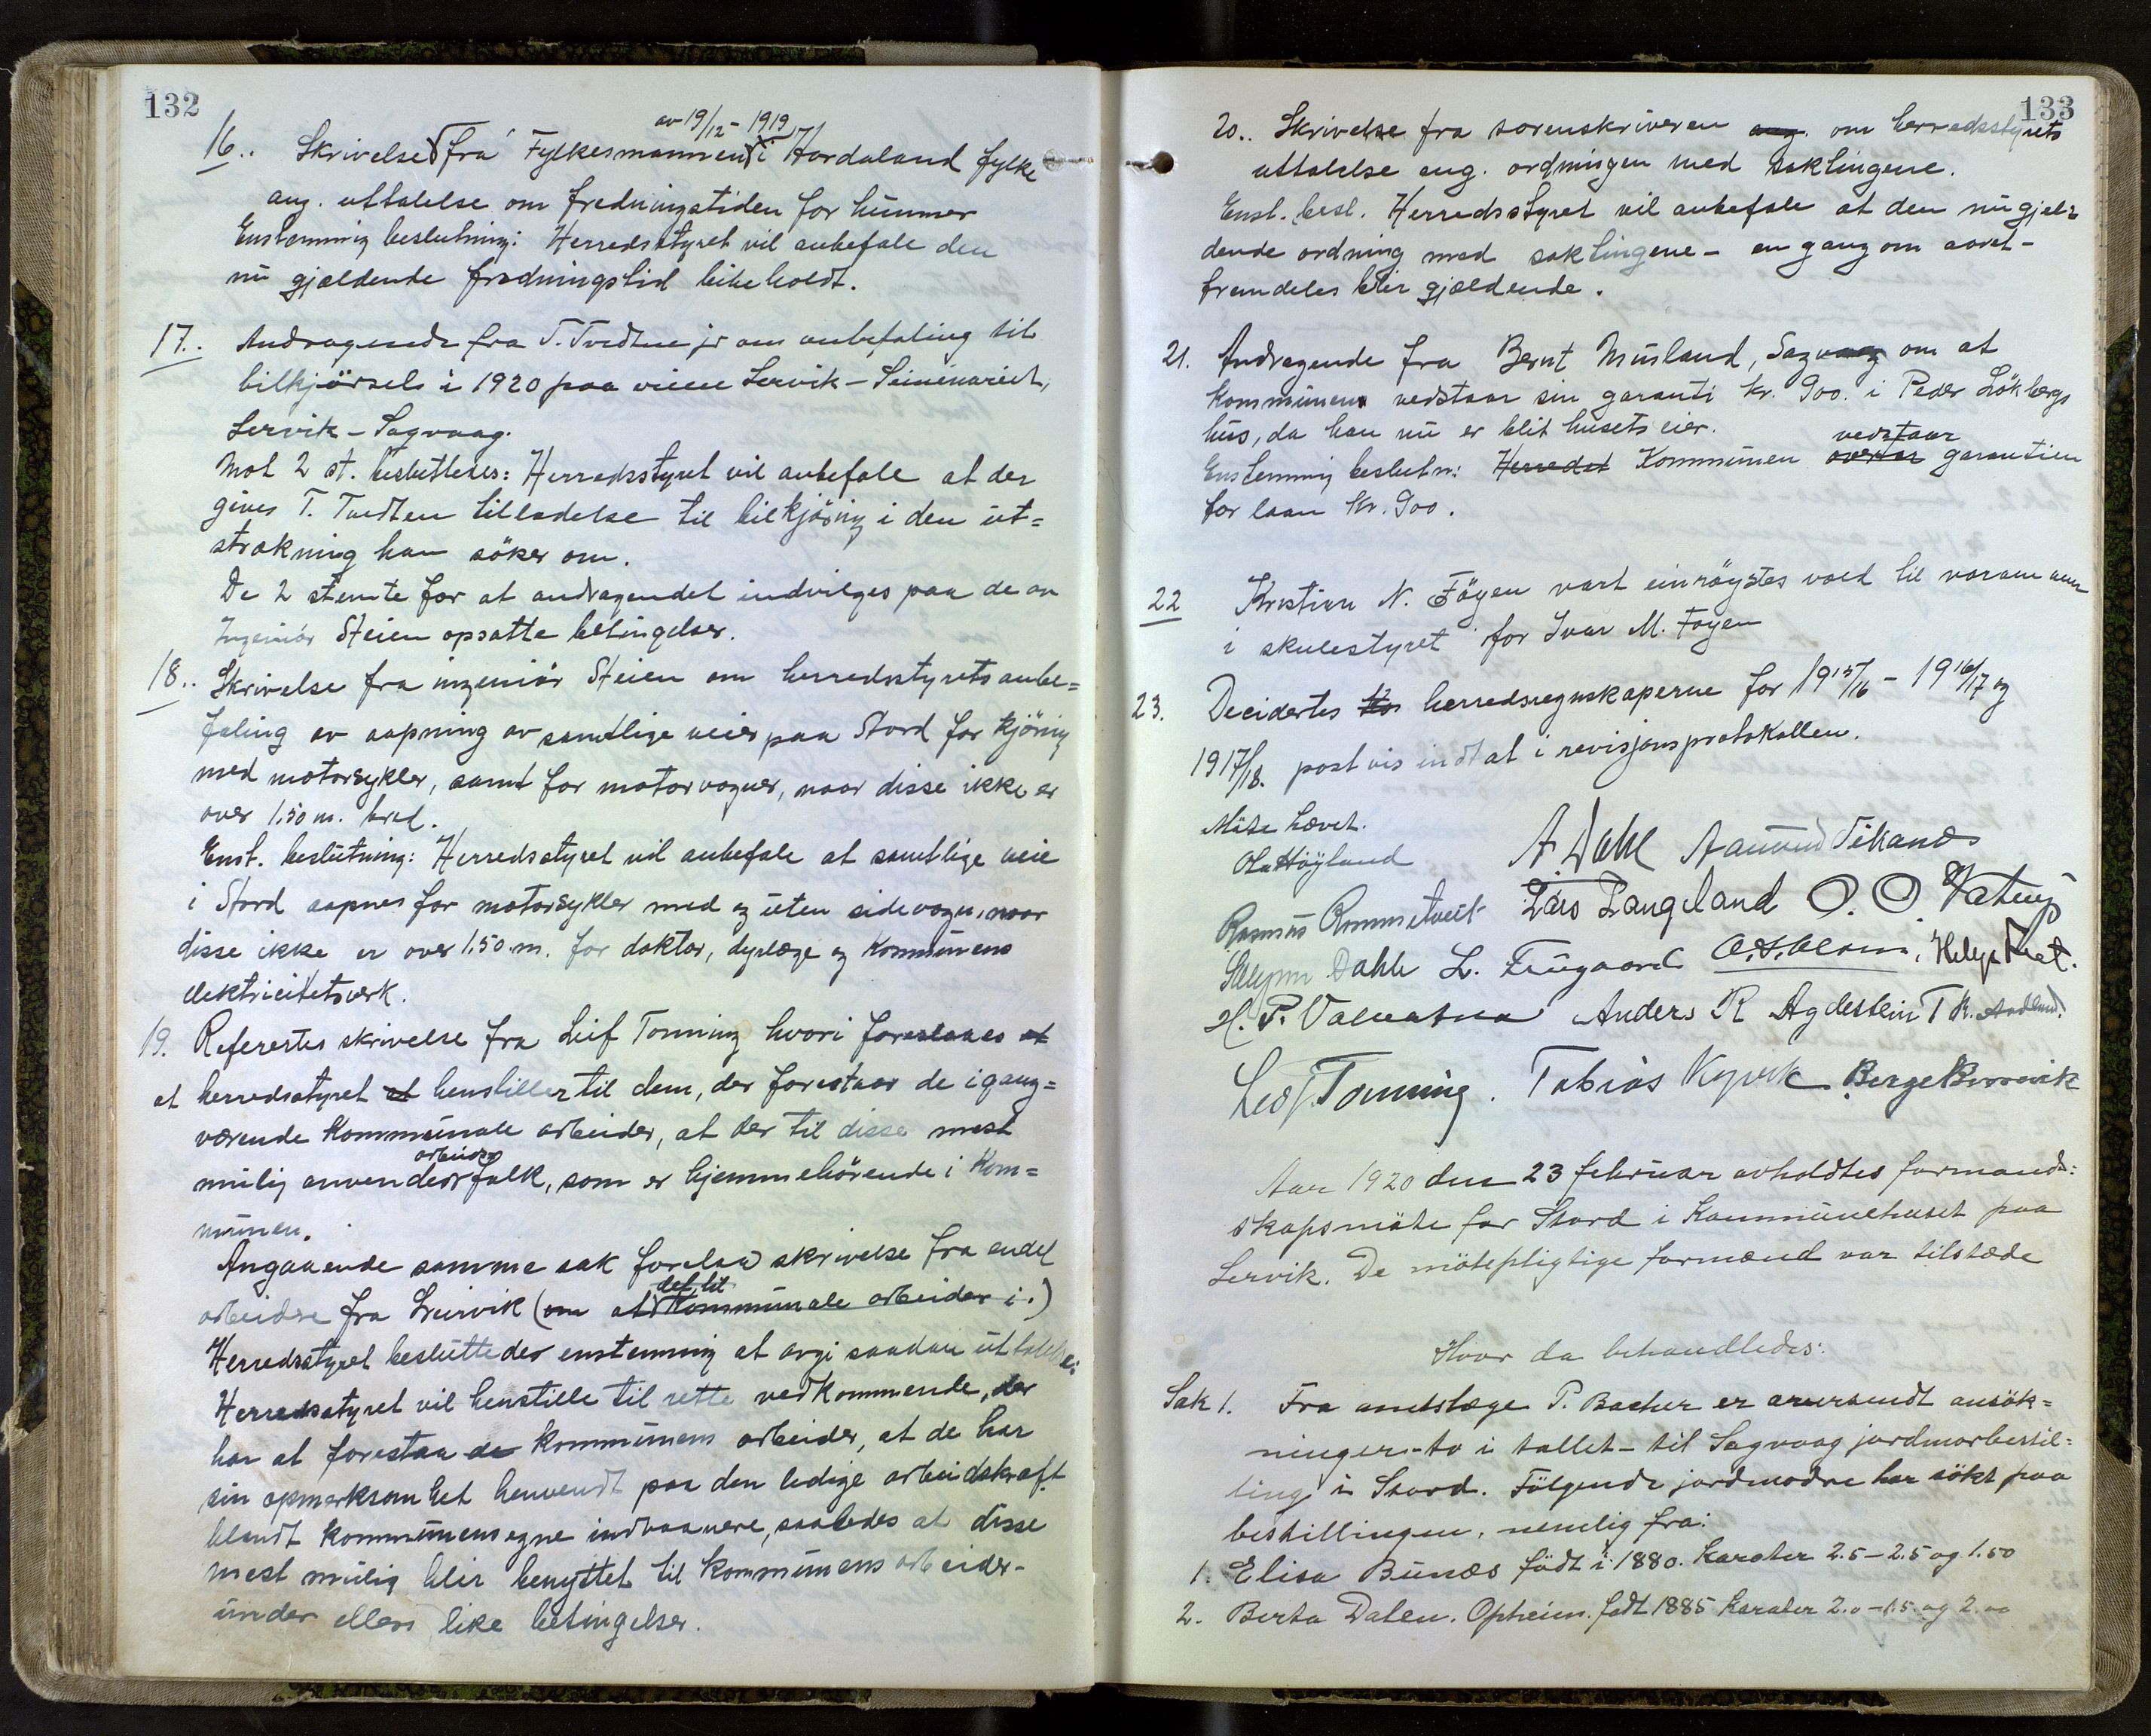 132
av 19/12 - 1919
16.. Skrivelse fra Fylkesmannen i Hordaland fylke
ang. uttalelse om fredningstiden for hummer
Enstemmig beslutning: Herredsstyret vil anbefale den
nu gjældende fredningstid bibeholdt.
17.. Andragende fra T. Tvedten jr om anbefaling til
bilkjörsel i 1920 paa veiene Lervik - Seminariet,
Lervik - Sagvaag.
Mot 2 st. besluttedes: Herredsstyret vil anbefale at der
gives T. Tvedten tilladelse til bilkjöring i den ut=
strækning han söker om.
De 2 stemte for at andragendet indvilges paa de av
Ingeniör Steien opsatte betingelser.
18.. Skrivelse fra ingeniör Steien om herredsstyrets anbe=
faling av aapning av samtlige veier paa Stord for kjöring
med motorsykler, samt for motorvogner, naar disse ikke er
over 1,50 m. bred.
Enst. beslutning: Herredsstyret vil anbefale at samtlige veie
i Stord aapnes for motorsykler med og uten sidevogn, naar
disse ikke er over 1.50 m. for doktor, dyrlæge og Kommunens
elektricitetsverk.
19. Referertes skrivelse fra Leif Tonning hvori foreslaaes at
at herredsstyret at henstiller til dem, der forestaar de igang=
værende Kommunale arbeider, at der til disse mest
mulig anvendes arbeidsfolk, som er hjemmehörende i Kom=
munen.
Angaaende samme sak forelaa skrivelse fra endel
arbeidere fra Leirvik (om at det til Kommunale arbeider i.)
Herredsstyret besluttedes enstemmig at avgi saadan uttalelse:
Herredsstyret vil henstille til rette vedkommende, der
har at forestaa de kommunens arbeider, at de har
sin opmerksomhet henvendt paa den ledige arbeidskraft
blandt kommunens egne indvaanere, saaledes at disse
mest mulig blir benyttet til Kommunens arbeider -
under ellers like betingelser.
133
20.. Skrivelse fra sorenskriveren ang. om herredsstyrets
uttalelse ang. ordningen med saktingene.
Enst. besl. Herredsstyret vil anbefale at den nu gjel=
dende ordning med saktingene - en gang om aaret -
fremdeles blir gjældende.
21. Andragende fra Bernt Musland, Sagvaag om at
Kommunen vedstaar sin garanti kr. 900. i Peder Lökbergs
hus, da han nu er blit husets eier.
vedstaar
Enstemmig beslutn: Herredet Kommunen overtar garantien
for laan Kr. 900.
22 Kristian N. Föyen vart einröystes vald til varamann
i skulestyret for Ivar M. Föyen
23. Decidertes herredsregnskaperne for 1915/16 - 1916/17 og
1917/18. postvis indtat i revisjonsprotokollen.
Möte hævet.
Ola Höyland A Dahl Aamund Tekanes
Rasmus Rommetveit Lars Langeland O. O. Vatnø
Dahle L. Frugaard Helge
H. P. Valvatna Anders R Agdestein T K.
Leif Tonning. Tobias Kyvik Berge
Aar 1920 den 23 februar avholdtes formand=
skapsmöte for Stord i Kommunehuset paa
Lervik. De mötepligtige formænd var tilstæde
Hvor da behandledes:
Sak 1. Fra amtslæge P. Backer er oversendt ansök=
ninger - to i tallet - til Sagvaag jordmorbestil=
ling i Stord. Fölgende jordmödre har sökt paa
bestillingen, nemlig fra:
1. Elisa Bunæs födt i 1880. Karakter 2.5 - 2.5 og 1.50
2. Berta Dalen. Opheim. födt 1885 Karakter 2.0 - 1.5. og 2.00